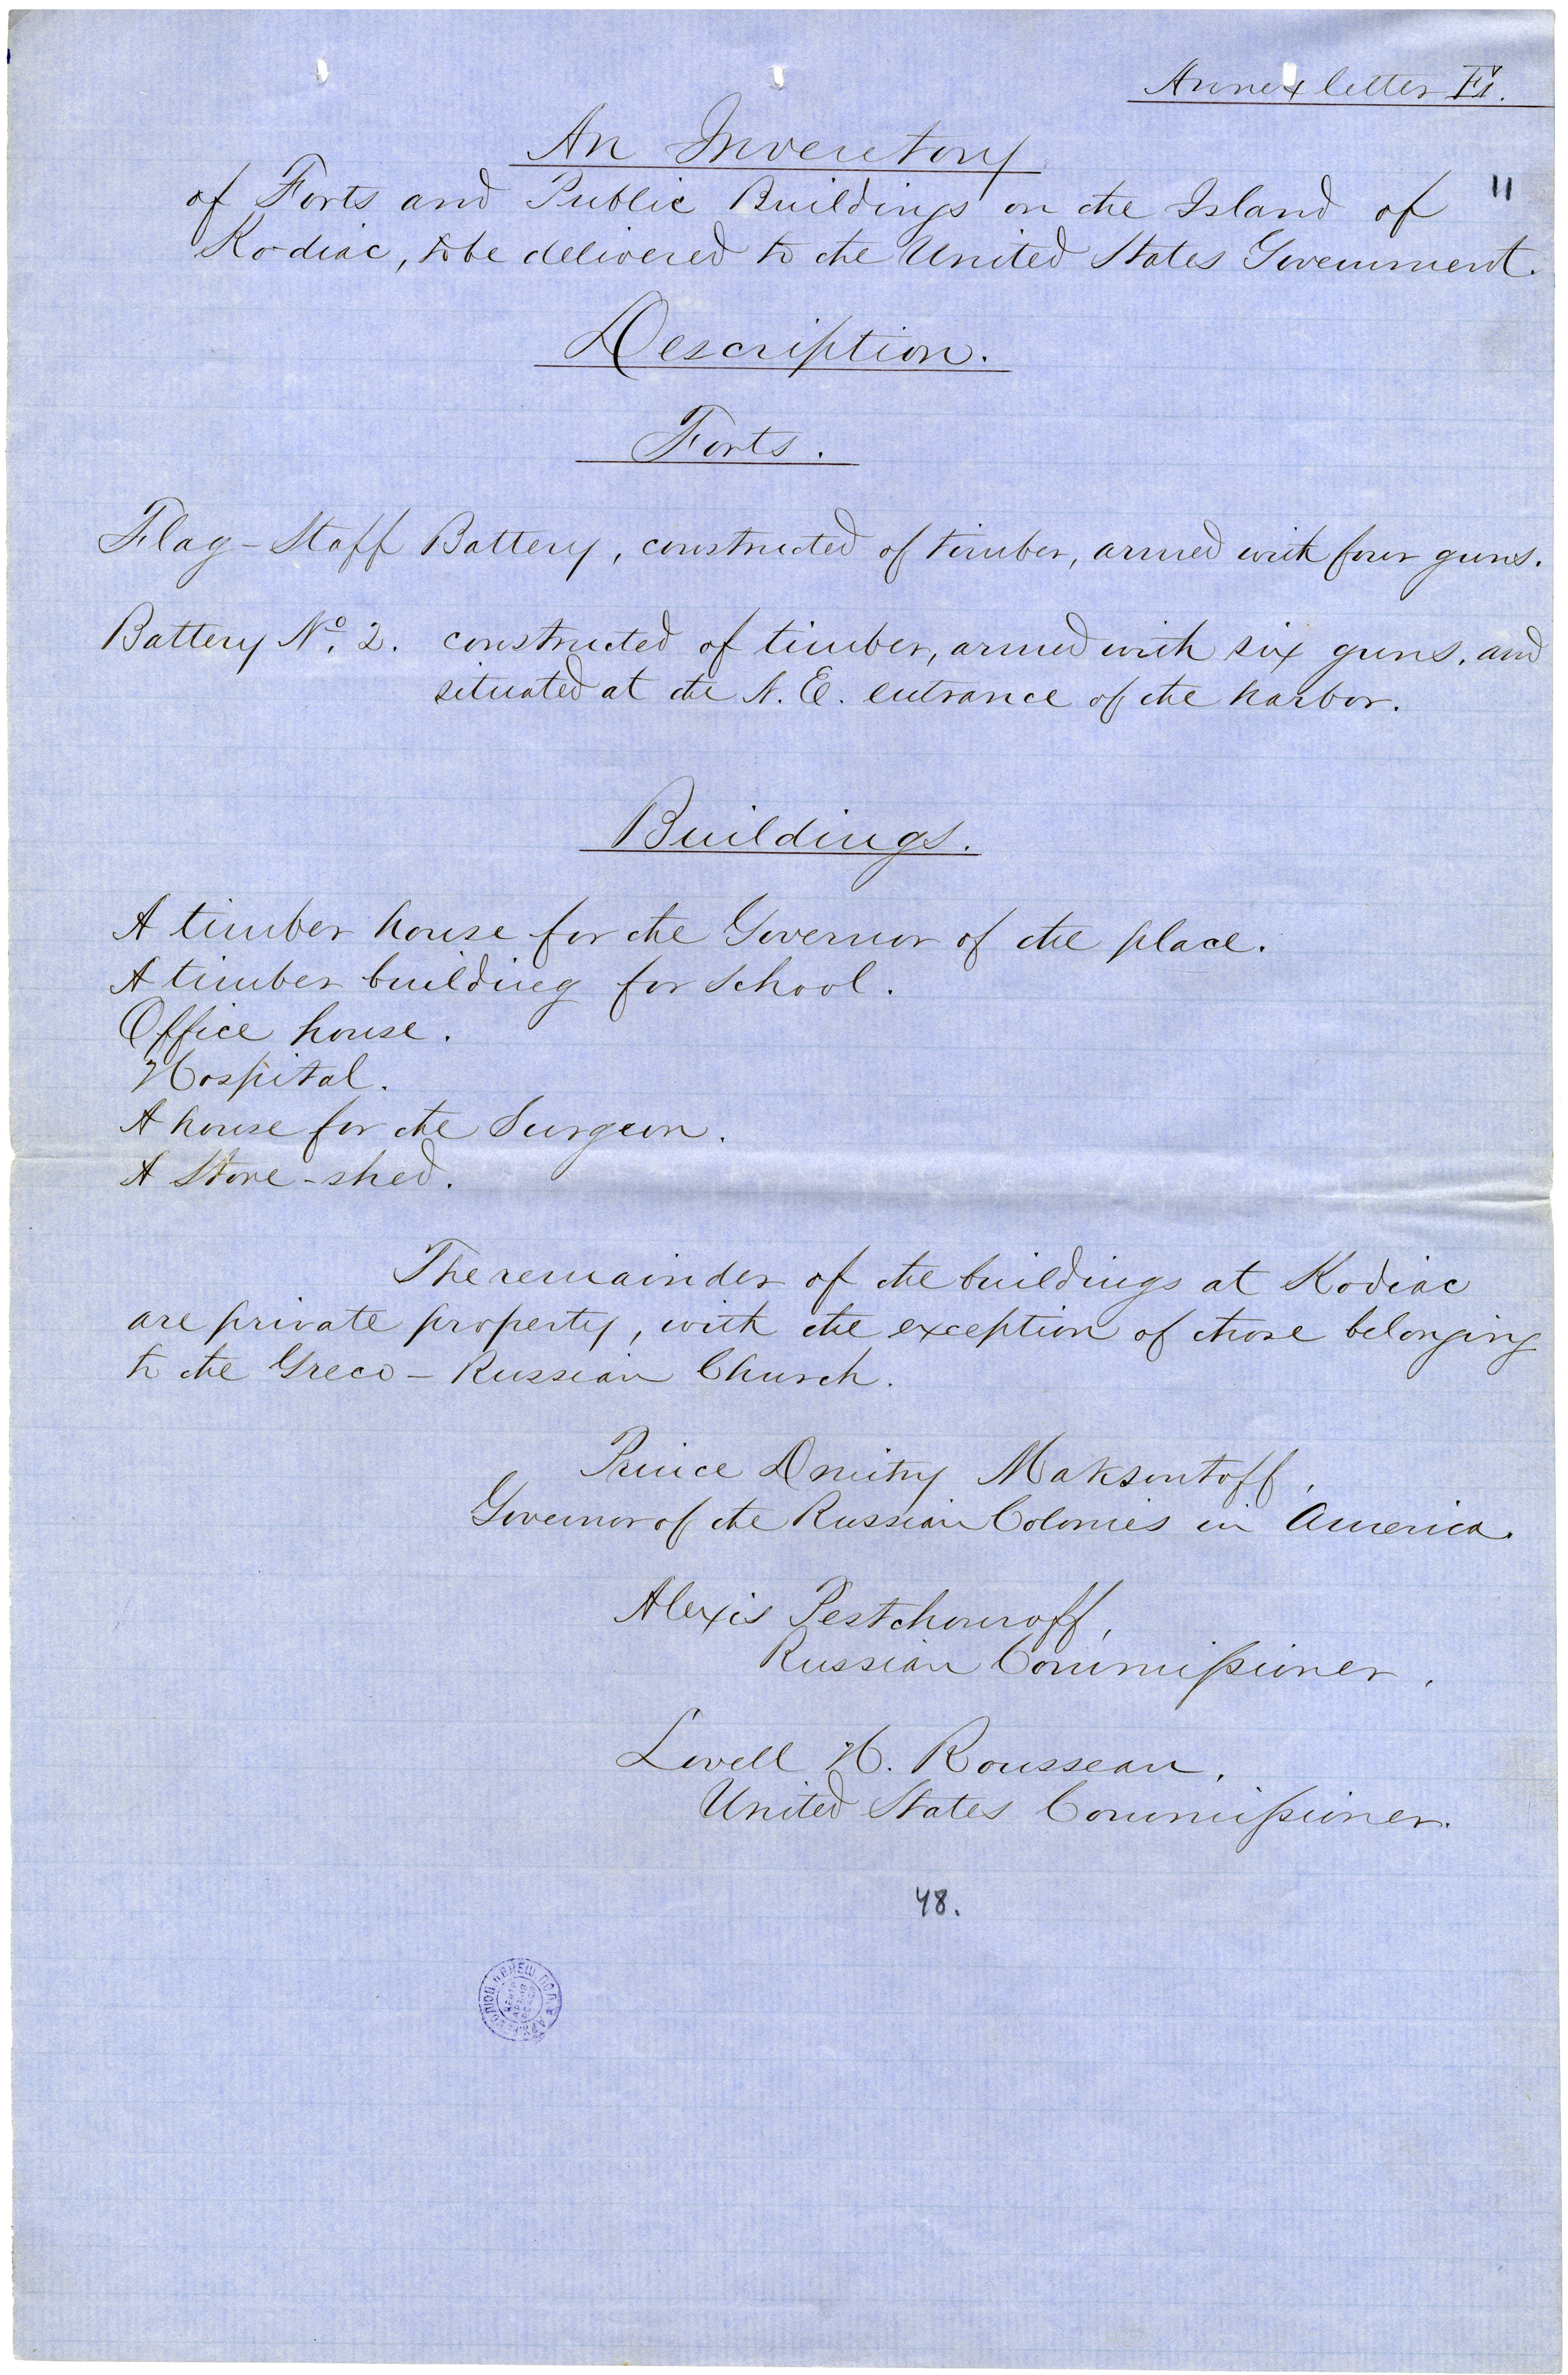 Annex letter F.
An Inventory
11
of Forts and Public Buildings on the Island of
Kodiac, to be delivered to the United States Government.
Description.
Forts.
Flag-Staff Battery, constructed of timber, armed with four guns.
Battery No. 2. constructed of timber, armed with six guns, and
situated at the N. E. entrance of the harbor.
Buildings.
A timber house for the Governor of the place.
A timber building for School.
Office house.
Hospital.
A house for the Surgeon.
A Store-shed.
The remainder of the buildings at Kodiac
are private property, with the exception of those belonging
to the Greco-Russian Church.
Prince Dmitry Maksoutoff,
Governor of the Russian Colonies in America.
Alexis Pestchouroff,
Russian Commissioner,
Lovell H. Rousseau,
United States Commissioner.
48.